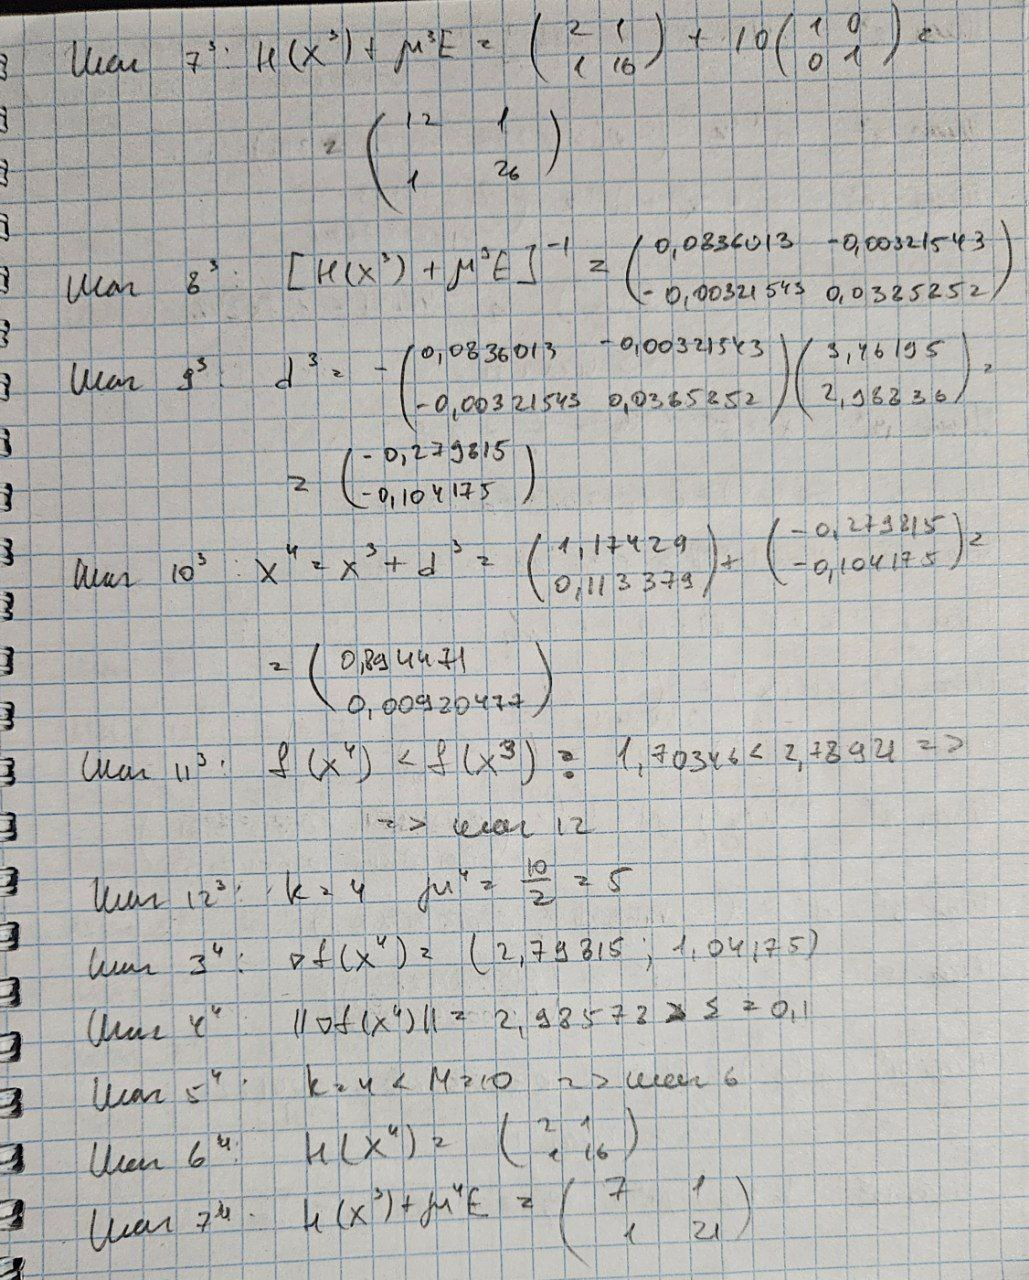 Шаг 7³: H(x³) + μ³E = ( 2 1 ) + 10 ( 1 0 ) =
( 1 16 ) ( 0 1 )
= ( 12 1 )
( 1 26 )
Шаг 8³: [H(x³) + μ³E]⁻¹ = ( 0,0836013 -0,00321543 )
( -0,00321543 0,0385852 )
Шаг 9³: d³ = - ( 0,0836013 -0,00321543 ) ( 3,46195 ) =
( -0,00321543 0,0385852 ) ( 2,98836 )
= ( -0,279815 )
( -0,104175 )
Шаг 10³: x⁴ = x³ + d³ = ( 1,17429 ) + ( -0,279815 ) =
( 0,113379 ) ( -0,104175 )
= ( 0,894471 )
( 0,00920477 )
Шаг 11³: f(x⁴) < f(x³) : 1,70346 < 2,78921 =>
=> шаг 12
Шаг 12³: k = 4 μ⁴ = 10/2 = 5
Шаг 3⁴: ∇f(x⁴) = (2,79815 ; 1,04175)
Шаг 4⁴ ||∇f(x⁴)|| = 2,98573 > ε = 0,1
Шаг 5⁴: k = 4 < M = 10 => шаг 6
Шаг 6⁴: H(x⁴) = ( 2 1 )
( 1 16 )
Шаг 7⁴: H(x³) + μ⁴E = ( 7 1 )
( 1 21 )